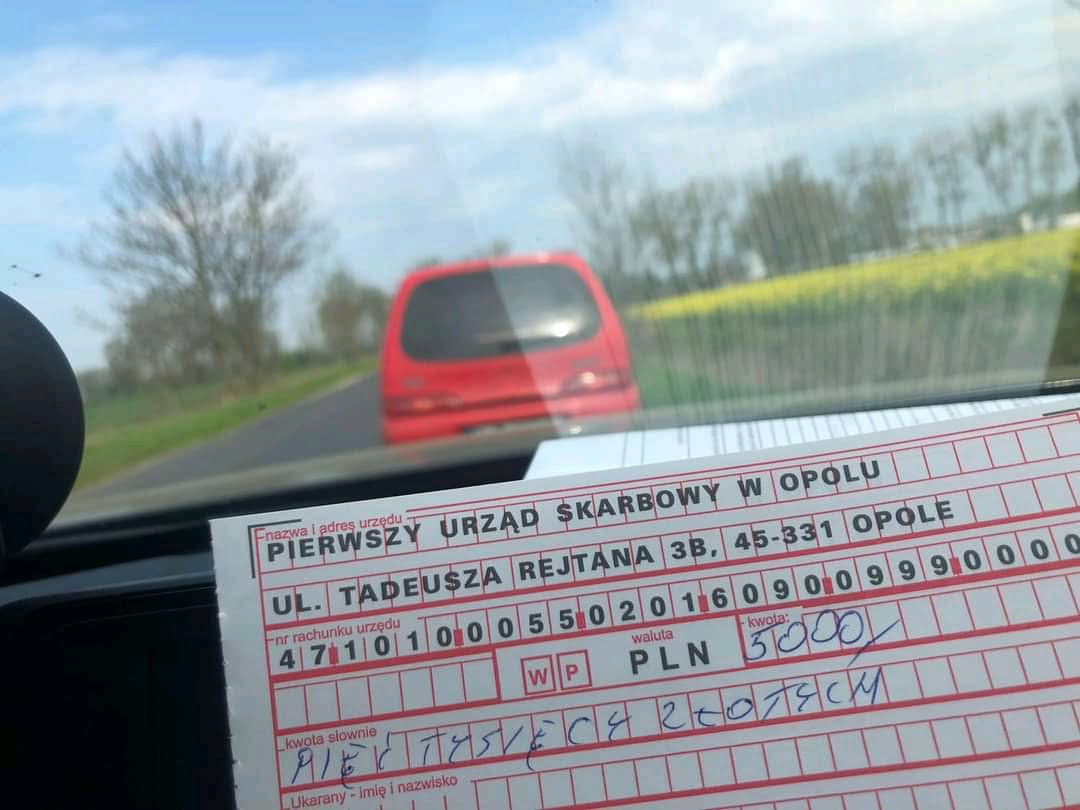 nazwa i adres urzędu
PIERWSZY URZĄD SKARBOWY W OPOLU
UL. TADEUSZA REJTANA 3B, 45-331 OPOLE
nr rachunku urzędu
47101000550201609009990000
W P
waluta
PLN
kwota:
5000,-
kwota słownie
PIĘĆ TYSIĘCY ZŁOTYCH
Ukarany - imię i nazwisko